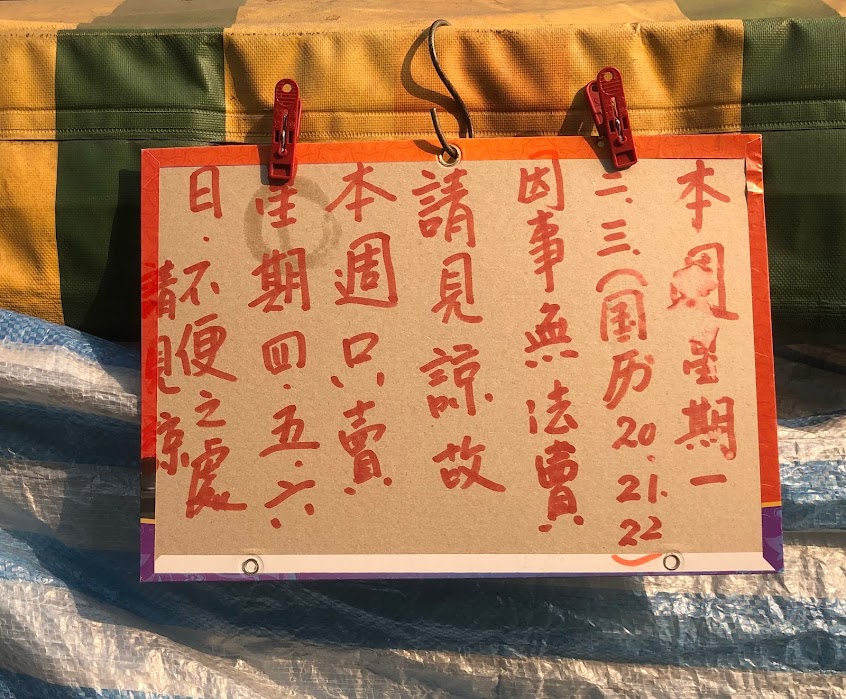 本周星期一
二.三.(国历20.21.22
因事無法賣
請見諒故
本週只賣
星期四.五.六
日.不便之處
請見諒